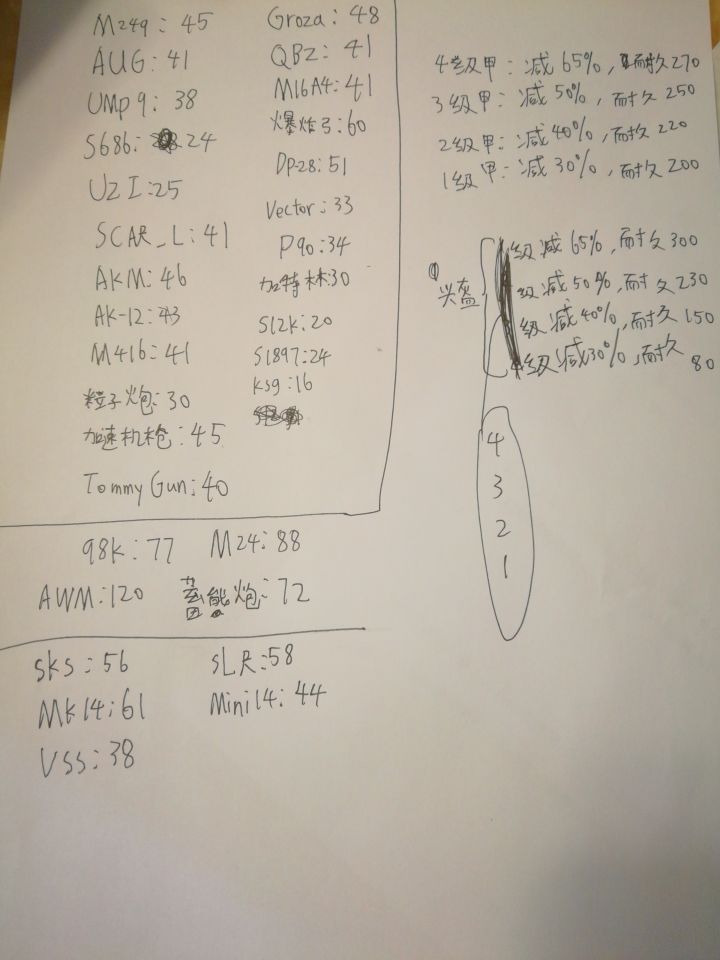 M249: 45
AUG: 41
UMP9: 38
S686: 24
UZI: 25
SCAR_L: 41
AKM: 46
AK-12: 43
M416: 41
粒子炮: 30
加速机枪: 45
Tommy Gun: 40
Groza: 48
QBZ: 41
M16A4: 41
爆炸弓: 60
DP-28: 51
Vector: 33
P90: 34
加特林: 30
S12k: 20
S1897: 24
ksg: 16
98k: 77 M24: 88
AWM: 120 蓄能炮: 72
sks: 56 SLR: 58
MK14: 61 Mini14: 44
VSS: 38
4级甲: 减65%, 耐久270
3级甲: 减50%, 耐久250
2级甲: 减40%, 耐久220
1级甲: 减30%, 耐久200
头盔
级减65%, 耐久300
级减50%, 耐久230
级减40%, 耐久150
级减30%, 耐久80
4
3
2
1